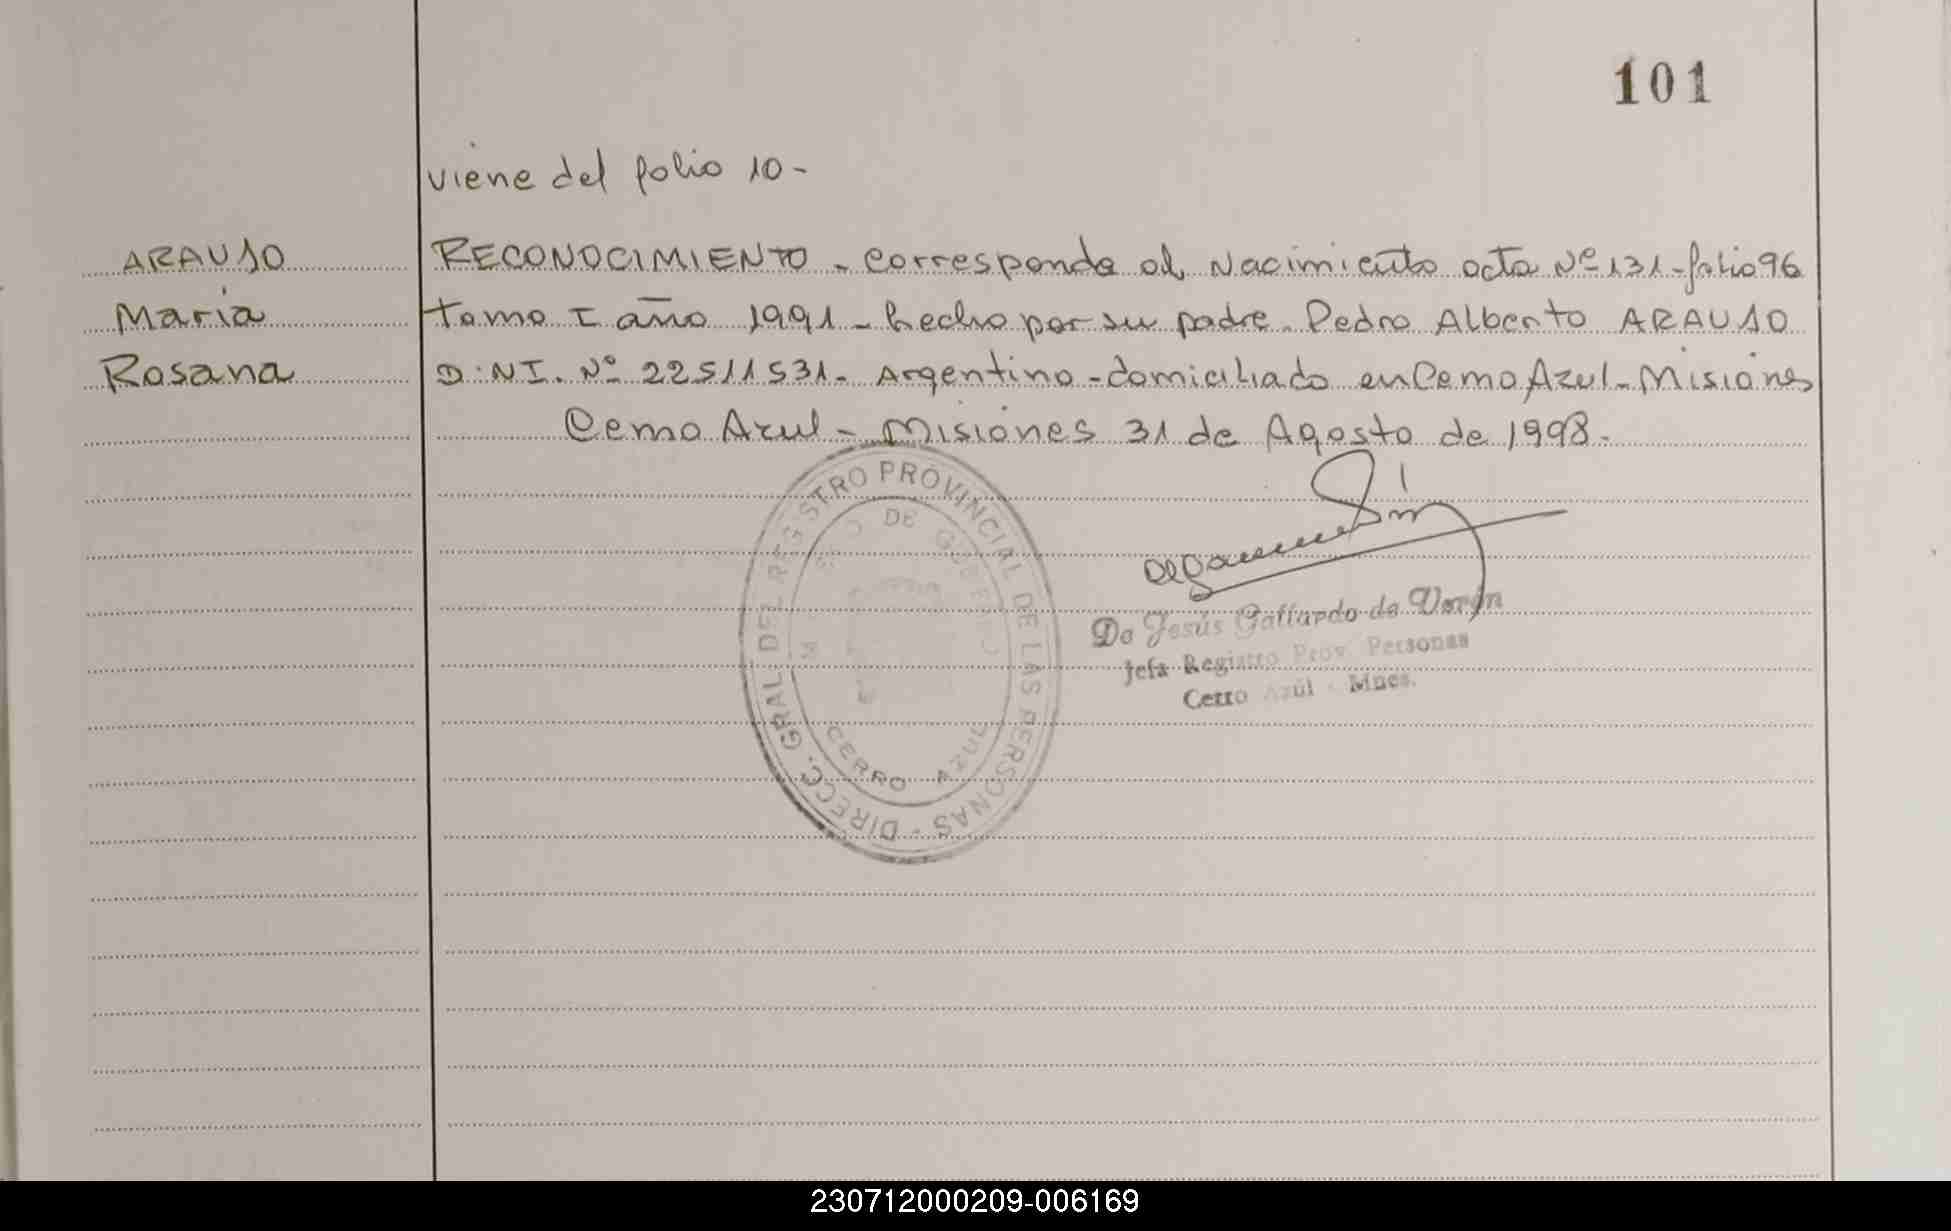 101
viene del folio 10-
ARAUJO
Maria
Rosana
RECONOCIMIENTO - Corresponde al Nacimiento acta Nº 131-folio 96
tomo I año 1991 - hecho por su padre. Pedro Alberto ARAUJO
D.NI. Nº 22511531- Argentino-domiciliado en Cerro Azul-Misiones
Cerro Azul - Misiones 31 de Agosto de 1998-
DIRECC. GRAL DEL REGISTRO PROVINCIAL DE LAS PERSONAS -
DE GOBIERNO
CERRO AZUL
De Jesús Gallardo de Verón
Jefa Registro Prov. Personas
Cerro Azúl - Mnes.
230712000209-006169